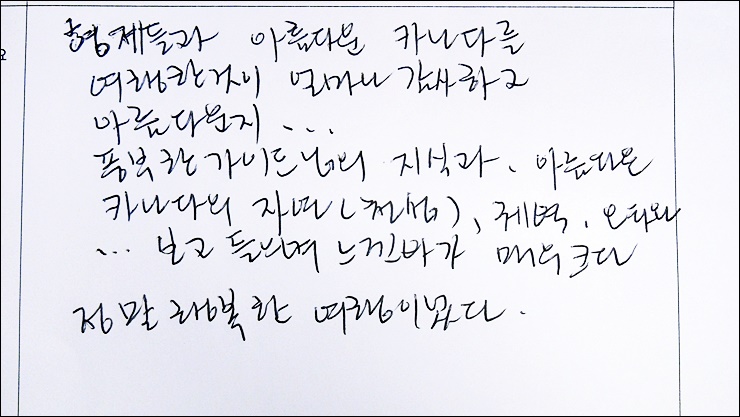 형제들과 아름다운 카나다를
여행한것이 얼마나 감사하고
아름다운지 ...
풍부한 가이드님의 지식과. 아름다운
카나다의 자연(천섬), 퀘벡. 오타와
... 보고 들으며 느낀바가 매우 크다
정말 행복한 여행이였다.
요